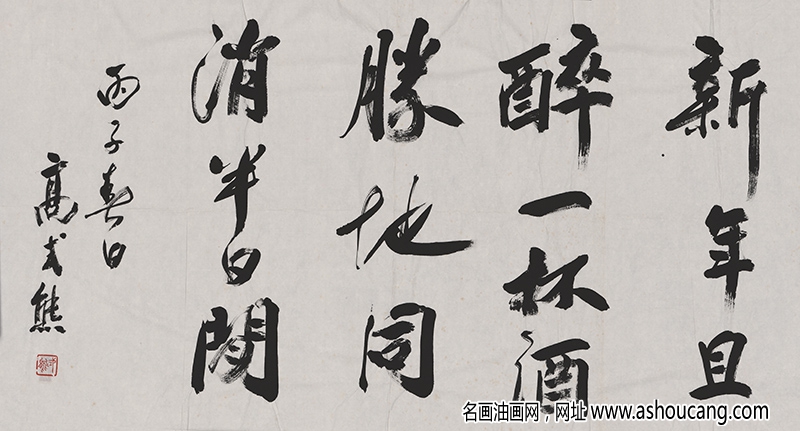 新年且
醉一杯酒
勝地同
消半日閒
丙子春日
高式熊
名画油画网，网址 www.ashoucang.com